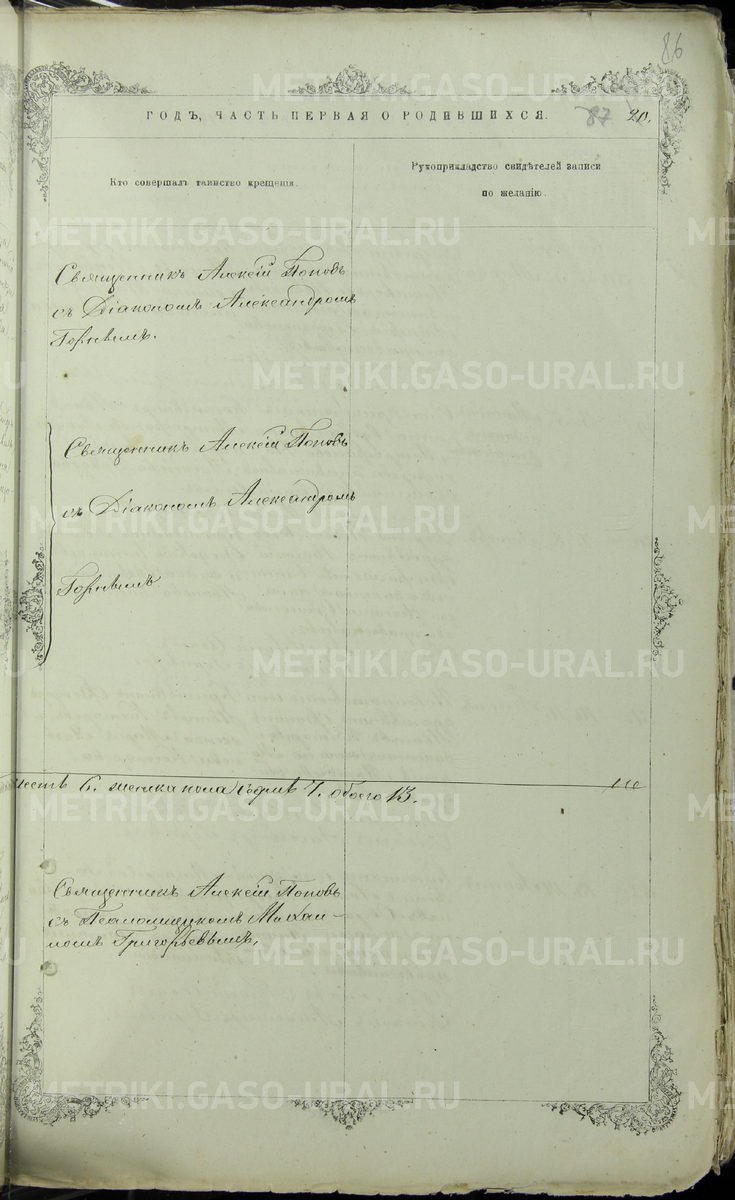 86
ГОДЪ, ЧАСТЬ ПЕРВАЯ О РОДИВШИХСЯ.
87 20.
Кто совершалъ таинство крещенія.
Рукоприкладство свидѣтелей записи
по желанію.
Священникъ Алексій Поповъ
съ Діакономъ Александромъ
Горнымъ.
Священникъ Алексій Поповъ
съ Діакономъ Александромъ
Горнымъ
шесть 6. женска пола седмь 7. обоего 13.
Священникъ Алексій Поповъ
съ Псаломщикомъ Михаи-
ломъ Григорьевымъ.
METRIKI.GASO-URAL.RU